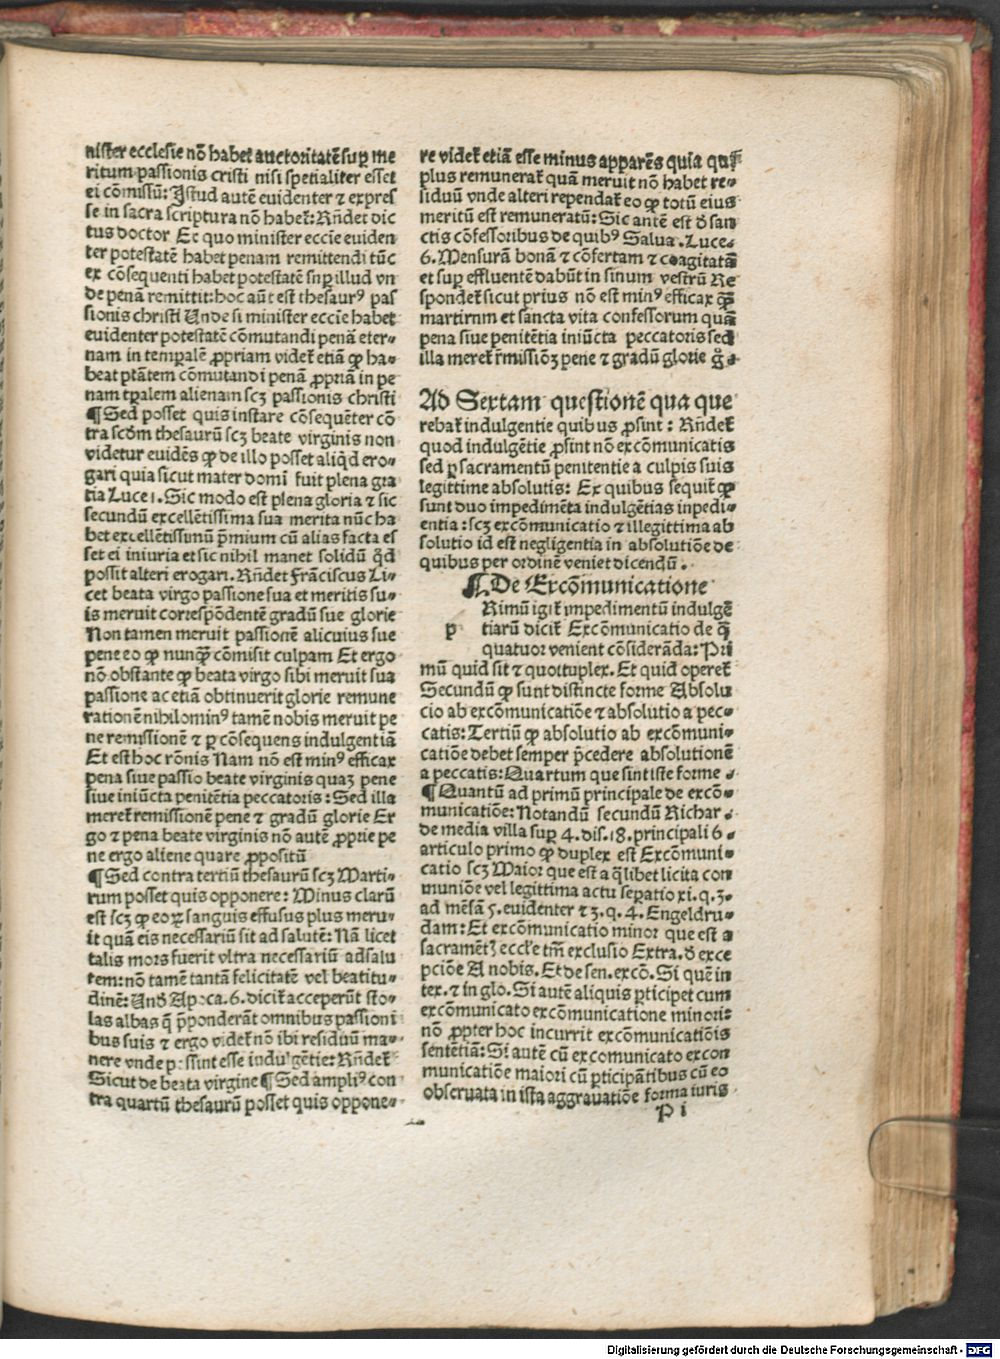 nister ecclesie nō habet̄ auctoritatē sup̱ me
ritum passionis cristi nisi spetialiter esset
ei cōmissū: Istud autē euidenter ⁊ expres
se in sacra scriptura nō habet̄: Rn̄det dic
tus doctor Ec quo minister eccīe euiden
ter potestatē habet penam remittendi tūc
ex cōsequenti habet potestatē sup̱ illud vn
de penā remittit: hoc aūt est thesaurꝰ pas
sionis christi Unde si minister eccīe habet
euidenter potestatē cōmutandi penā eter⸗
nam in temp̱alē ꝓpriam videt̄ etiā ꝙ ha⸗
beat ptātem cōmutandi penā ꝓpriā in pe
nam tp̱alem alienam scꝫ passionis christi
¶ Sed posset quis instare cōsequēter cō
tra scd̄m thesaurū scꝫ beate virginis non
videtur euidēs ꝙ de illo posset aliq̇d ero⸗
gari quia sicut mater domī fuit plena gra
tia Luce 1. Sic modo est plena gloria ⁊ sic
secundū excellētissima sua merita nūc ha
bet excellētissimū p̄mium cū alias facta es
set ei iniuria et sic nihil manet solidū q̇d
possit alteri erogari. Rn̄det frāciscus Li⸗
cet beata virgo passione sua et meritis su⸗
is meruit correspōdentē gradū sue glorie
Non tamen meruit passionē alicuius sue
pene eo ꝙ nunq̄ȝ cōmisit culpam Et ergo
nō obstante ꝙ beata virgo sibi meruit sua
passione ac etiā obtinuerit glorie remune
rationē nihilominꝰ tamē nobis meruit pe
ne remissionē ⁊ p̱ cōsequens indulgentiā
Et est hoc rōnis Nam nō est minꝰ efficax
pena siue passio beate virginis quaꝫ pene
siue iniūcta penitētia peccatoris: Sed illa
meret̄ remissionē pene ⁊ gradū glorie Er
go ⁊ pena beate virginis nō autē ꝓprie pe
ne ergo aliene quare ꝓpositū
¶ Sed contra tertiū thesaurū scꝫ Marti⸗
rum posset quis opponere: Minus clarū
est scꝫ ꝙ eoꝝ sanguis effusus plus meru⸗
it quā eis necessariū sit ad salutē: Nā licet
talis mors fuerit vltra necessariū ad salu
tem: nō tamē tantā felicitatē vel beatitu⸗
dinē: Und̄ Apoca. 6. dicit̄ acceperūt sto⸗
las albas q̄ p̄ponderāt omnibus passioni
bus suis ⁊ ergo videt̄ nō ibi residuū ma⸗
nere vnde possint esse indulgētie: Rn̄det̄
Sicut de beata virgine ¶ Sed ampliꝰ con
tra quartū thesaurū posset quis oppone⸗
re videt̄ etiā esse minus apparēs quia
plus remunerat̄ quā meruit nō habet re⸗
siduū vnde alteri rependat̄ eo ꝙ totū eius
meritū est remuneratū: Sic autē est d̄ san
ctis cōfessoribus de quibꝰ Salua. Luce.
6. Mensurā bonā ⁊ cōfertam ⁊ coagitatā
et sup̱ effluentē dabūt in sinum vestrū Re
spondet̄ sicut prius nō est minꝰ efficax q̄ȝ
martirum et sancta vita confessorum quā
pena siue penitētia iniūcta peccatoris sed
illa meret̄ r̄missiōꝫ pene ⁊ gradū glorie g̊.
Ad Sextam questionē qua que
rebat̄ indulgentie quibus ꝓsint: Rn̄det̄
quod indulgētie ꝓsint nō excōmunicatis
sed p̱ sacramentū penitentie a culpis suis
legittime absolutis: Ex quibus sequit̄ ꝙ
sunt duo impedimēta indulgētias inpedi⸗
entia: scꝫ excōmunicatio ⁊ illegittima ab
solutio id est negligentia in absolutiōe de
quibus per ordinē veniet dicendū.
¶ De Excōmunicatione
Rimū igit̄ impedimentū indulgē
p tiarū dicit̄ Excōmunicatio de q̄
quatuor venient cōsiderāda: Pri
mū quid sit ⁊ quottuplex. Et quid operet̄
Secundū ꝙ sunt distincte forme Absolu
cio ab excōmunicatiōe ⁊ absolutio a pec⸗
catis: Tertiū ꝙ absolutio ab excōmuni⸗
catiōe debet semper p̄cedere absolutionē
a peccatis: Quartum que sint iste forme.
¶ Quantū ad primū principale de excō⸗
municatiōe: Notandū secundū Richar.
de media villa sup̱ 4. dis. 18. principali 6.
articulo primo ꝙ duplex est Excōmuni⸗
catio scꝫ Maior que est a q̇libet licita con
muniōe vel legittima actu sep̱atio xi. q. 3.
ad mēsā 5. euidenter ⁊ 3. q. 4. Engeldru⸗
dam: Et excōmunicatio minor que est a
sacramētꝭ eccl̄e tm̄ exclusio Extra. d̄ exce
pciōe A nobis. Et de sen. excō. Si quē in
tex. ⁊ in glo. Si autē aliquis p̱ticipet cum
excōmunicato excōmunicatione minori:
nō ꝓpter hoc incurrit excōmunicatiōis
sentētiā: Si autē cū excomunicato excon
municatiōe maiori cū p̱ticipātibus cū eo
obseruata in ista aggrauatiōe forma iuris
P i
Digitalisierung gefördert durch die Deutsche Forschungsgemeinschaft - DFG